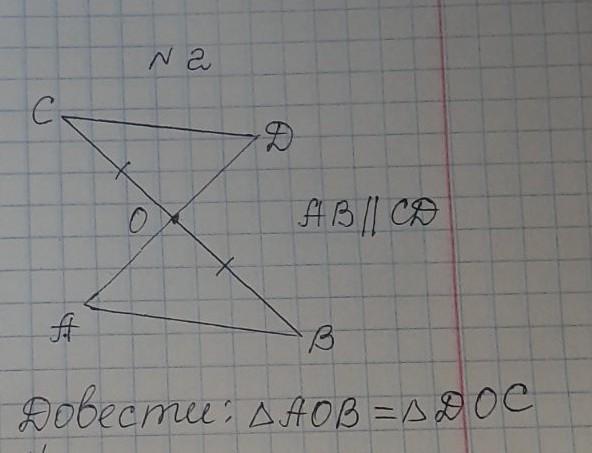 N 2
C
D
O
AB || CD
A
B
Довести: △AOB = △DOC